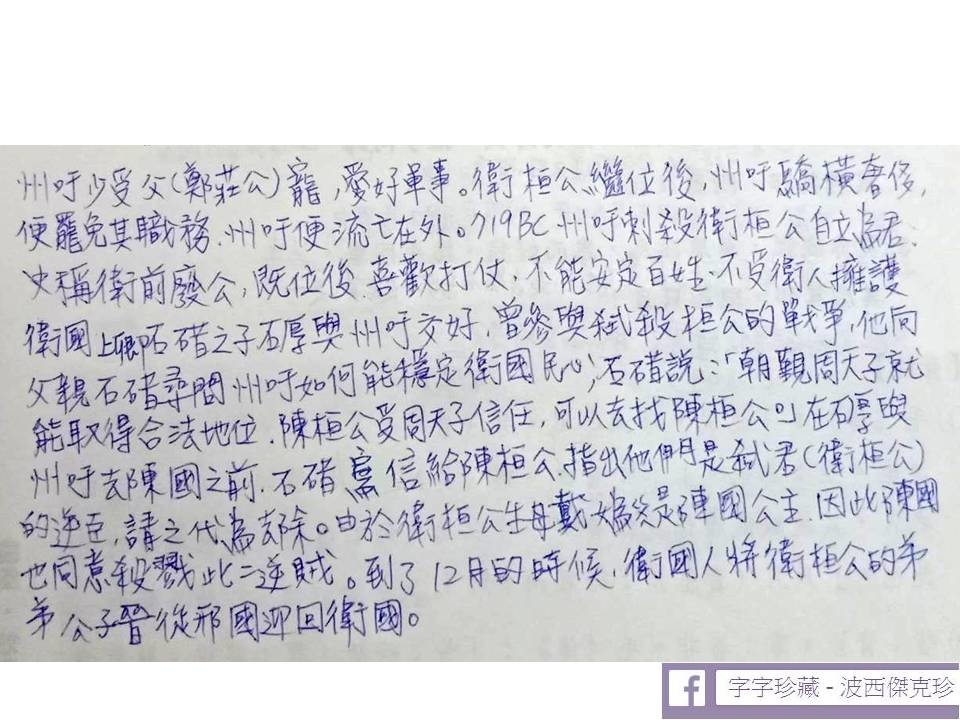 州吁少受父(鄭莊公)寵,愛好軍事。衛桓公繼位後,州吁驕橫奢侈,
便罷免其職務,州吁便流亡在外。719BC州吁刺殺衛桓公自立為君,
史稱衛前廢公,既位後,喜歡打仗,不能安定百姓,不受衛人擁護
衛國上卿石碏之子石厚與州吁交好,曾參與弒殺桓公的戰爭,他向
父親石碏尋問州吁如何能穩定衛國民心;石碏說:「朝覲周天子就
能取得合法地位,陳桓公受周天子信任,可以去找陳桓公」在石厚與
州吁去陳國之前,石碏寫信給陳桓公,指出他們是弒君(衛桓公)
的逆臣,請之代為去除。由於衛桓公生母戴媯是陳國公主,因此陳國
也同意殺戮此二逆賊。到了12月的時候,衛國人將衛桓公的弟
弟公子晉從邢國迎回衛國。
字字珍藏 - 波西傑克珍